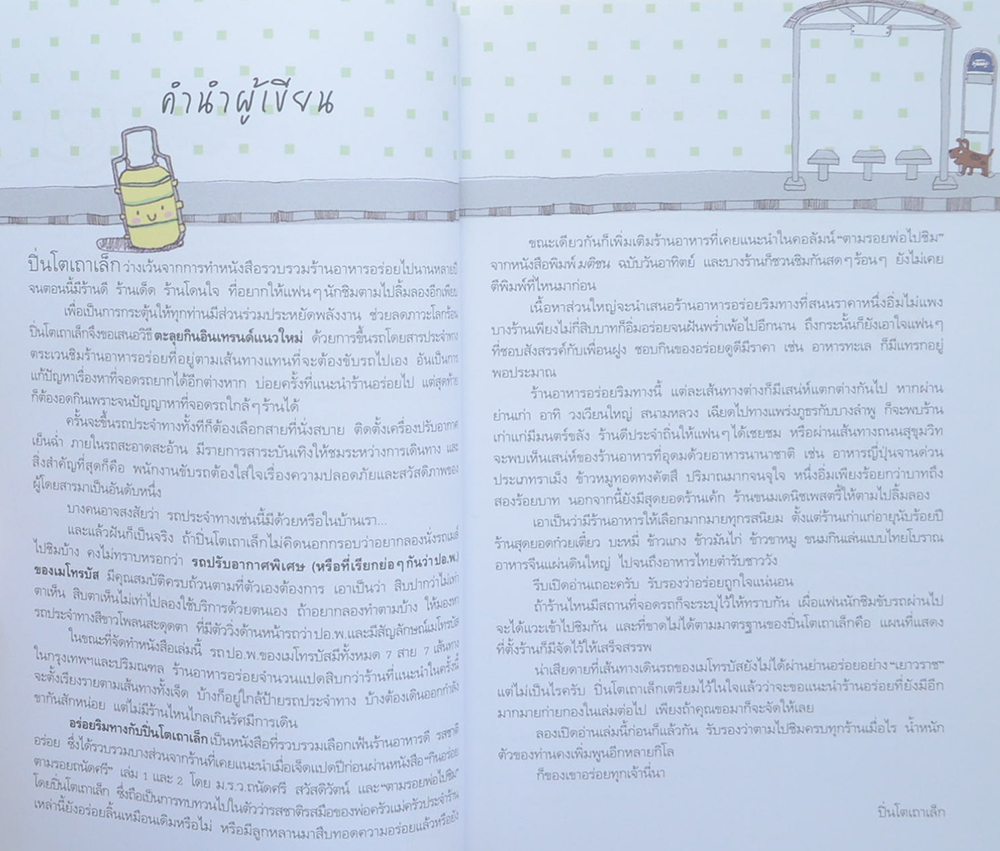 คำนำผู้เขียน
ปิ่นโตเถาเล็ก ว่างเว้นจากการทำหนังสือรวบรวมร้านอาหารอร่อยไปนานหลายปี
จนตอนนี้มีร้านดี ร้านเด็ด ร้านโดนใจ ที่อยากให้แฟนๆ นักชิมตามไปลิ้มลองอีกเพียบ
เพื่อเป็นการกระตุ้นให้ทุกท่านมีส่วนร่วมประหยัดพลังงาน ช่วยลดภาวะโลกร้อน
ปิ่นโตเถาเล็กจึงขอเสนอวิธี ตะลุยกินอินเทรนด์แนวใหม่ ด้วยการขึ้นรถโดยสารประจำทาง
ตระเวนชิมร้านอาหารอร่อยที่อยู่ตามเส้นทางแทนที่จะต้องขับรถไปเอง อันเป็นการ
แก้ปัญหาเรื่องหาที่จอดรถยากได้อีกต่างหาก บ่อยครั้งที่แนะนำร้านอร่อยไป แต่สุดท้าย
ก็ต้องอดกินเพราะจนปัญญาหาที่จอดรถใกล้ๆ ร้านได้
ครั้นจะขึ้นรถประจำทางทั้งทีก็ต้องเลือกสายที่นั่งสบาย ติดตั้งเครื่องปรับอากาศ
เย็นฉ่ำ ภายในรถสะอาดสะอ้าน มีรายการสาระบันเทิงให้ชมระหว่างการเดินทาง และ
สิ่งสำคัญที่สุดก็คือ พนักงานขับรถต้องใส่ใจเรื่องความปลอดภัยและสวัสดิภาพของ
ผู้โดยสารมาเป็นอันดับหนึ่ง
บางคนอาจสงสัยว่า รถประจำทางเช่นนี้มีด้วยหรือในบ้านเรา...
และแล้วฝันก็เป็นจริง ถ้าปิ่นโตเถาเล็กไม่คิดนอกกรอบว่าอยากลองนั่งรถเมล์
ไปชิมบ้าง คงไม่ทราบหรอกว่า รถปรับอากาศพิเศษ (หรือที่เรียกย่อๆ กันว่า ปอ.พ.)
ของเมโทรบัส มีคุณสมบัติครบถ้วนตามที่ตัวเองต้องการ เอาเป็นว่า สิบปากว่าไม่เท่า
ตาเห็น สิบตาเห็นไม่เท่าไปลองใช้บริการด้วยตนเอง ถ้าอยากลองทำตามบ้าง ให้มองหา
รถประจำทางสีขาวโพลนสะดุดตา ที่มีตัววิ่งด้านหน้ารถว่า ปอ.พ. และมีสัญลักษณ์เมโทรบัส
ในขณะที่จัดทำหนังสือเล่มนี้ รถ ปอ.พ. ของเมโทรบัสมีทั้งหมด 7 สาย 7 เส้นทาง
ในกรุงเทพฯและปริมณฑล ร้านอาหารอร่อยจำนวนแปดสิบกว่าร้านที่แนะนำในครั้งนี้
จะตั้งเรียงรายตามเส้นทางทั้งเจ็ด บ้างก็อยู่ใกล้ป้ายรถประจำทาง บ้างต้องเดินออกกำลัง
ขากันสักหน่อย แต่ไม่มีร้านไหนไกลเกินรัศมีการเดิน
อร่อยริมทางกับปิ่นโตเถาเล็ก เป็นหนังสือที่รวบรวมเลือกเฟ้นร้านอาหารดี รสชาติ
อร่อย ซึ่งได้รวบรวมบางส่วนจากร้านที่เคยแนะนำเมื่อเจ็ดแปดปีก่อนผ่านหนังสือ “กินอร่อย
ตามรอยถนัดศรี” เล่ม 1 และ 2 โดย ม.ร.ว.ถนัดศรี สวัสดิวัตน์ และ “ตามรอยพ่อไปชิม”
โดยปิ่นโตเถาเล็ก ซึ่งถือเป็นการทบทวนไปในตัวว่ารสชาติรสมือของพ่อครัวแม่ครัวประจำร้าน
เหล่านี้ยังอร่อยลิ้นเหมือนเดิมหรือไม่ หรือมีลูกหลานมาสืบทอดความอร่อยแล้วหรือยัง
ขณะเดียวกันก็เพิ่มเติมร้านอาหารที่เคยแนะนำในคอลัมน์ “ตามรอยพ่อไปชิม”
จากหนังสือพิมพ์ มติชน ฉบับวันอาทิตย์ และบางร้านก็ชวนชิมกันสดๆ ร้อนๆ ยังไม่เคย
ตีพิมพ์ที่ไหนมาก่อน
เนื้อหาส่วนใหญ่จะนำเสนอร้านอาหารอร่อยริมทางที่สนนราคาหนึ่งอิ่มไม่แพง
บางร้านเพียงไม่กี่สิบบาทก็อิ่มอร่อยจนฝันพร่ำเพ้อไปอีกนาน ถึงกระนั้นก็ยังเอาใจแฟนๆ
ที่ชอบสังสรรค์กับเพื่อนฝูง ชอบกินของอร่อยดูดีมีราคา เช่น อาหารทะเล ก็มีแทรกอยู่
พอประมาณ
ร้านอาหารอร่อยริมทางนี้ แต่ละเส้นทางต่างก็มีเสน่ห์แตกต่างกันไป หากผ่าน
ย่านเก่า อาทิ วงเวียนใหญ่ สนามหลวง เฉียดไปทางแพร่งภูธรกับบางลำพู ก็จะพบร้าน
เก่าแก่มีมนตร์ขลัง ร้านดีประจำถิ่นให้แฟนๆ ได้เชยชม หรือผ่านเส้นทางถนนสุขุมวิท
จะพบเห็นเสน่ห์ของร้านอาหารที่อุดมด้วยอาหารนานาชาติ เช่น อาหารญี่ปุ่นจานด่วน
ประเภทราเม็ง ข้าวหมูทอดทงคัตสึ ปริมาณมากจนจุใจ หนึ่งอิ่มเพียงร้อยกว่าบาทถึง
สองร้อยบาท นอกจากนี้ยังมีสุดยอดร้านเค้ก ร้านขนมเดนิชเพสตรี้ให้ตามไปลิ้มลอง
เอาเป็นว่ามีร้านอาหารให้เลือกมากมายทุกรสนิยม ตั้งแต่ร้านเก่าแก่อายุนับร้อยปี
ร้านสุดยอดก๋วยเตี๋ยว บะหมี่ ข้าวแกง ข้าวมันไก่ ข้าวขาหมู ขนมกินเล่นแบบไทยโบราณ
อาหารจีนแผ่นดินใหญ่ ไปจนถึงอาหารไทยตำรับชาววัง
รีบเปิดอ่านเถอะครับ รับรองว่าอร่อยถูกใจแน่นอน
ถ้าร้านไหนมีสถานที่จอดรถก็จะระบุไว้ให้ทราบกัน เผื่อแฟนนักชิมขับรถผ่านไป
จะได้แวะเข้าไปชิมกัน และที่ขาดไม่ได้ตามมาตรฐานของปิ่นโตเถาเล็กคือ แผนที่แสดง
ที่ตั้งร้านก็มีจัดไว้ให้เสร็จสรรพ
น่าเสียดายที่เส้นทางเดินรถของเมโทรบัสยังไม่ได้ผ่านย่านอร่อยอย่าง “เยาวราช”
แต่ไม่เป็นไรครับ ปิ่นโตเถาเล็กเตรียมไว้ในใจแล้วว่าจะขอแนะนำร้านอร่อยที่ยังมีอีก
มากมายก่ายกองในเล่มต่อไป เพียงถ้าคุณขอมาก็จะจัดให้เลย
ลองเปิดอ่านเล่มนี้ก่อนก็แล้วกัน รับรองว่าตามไปชิมครบทุกร้านเมื่อไร น้ำหนัก
ตัวของท่านคงเพิ่มพูนอีกหลายกิโล
ก็ของเขาอร่อยทุกเจ้านี่นา
ปิ่นโตเถาเล็ก